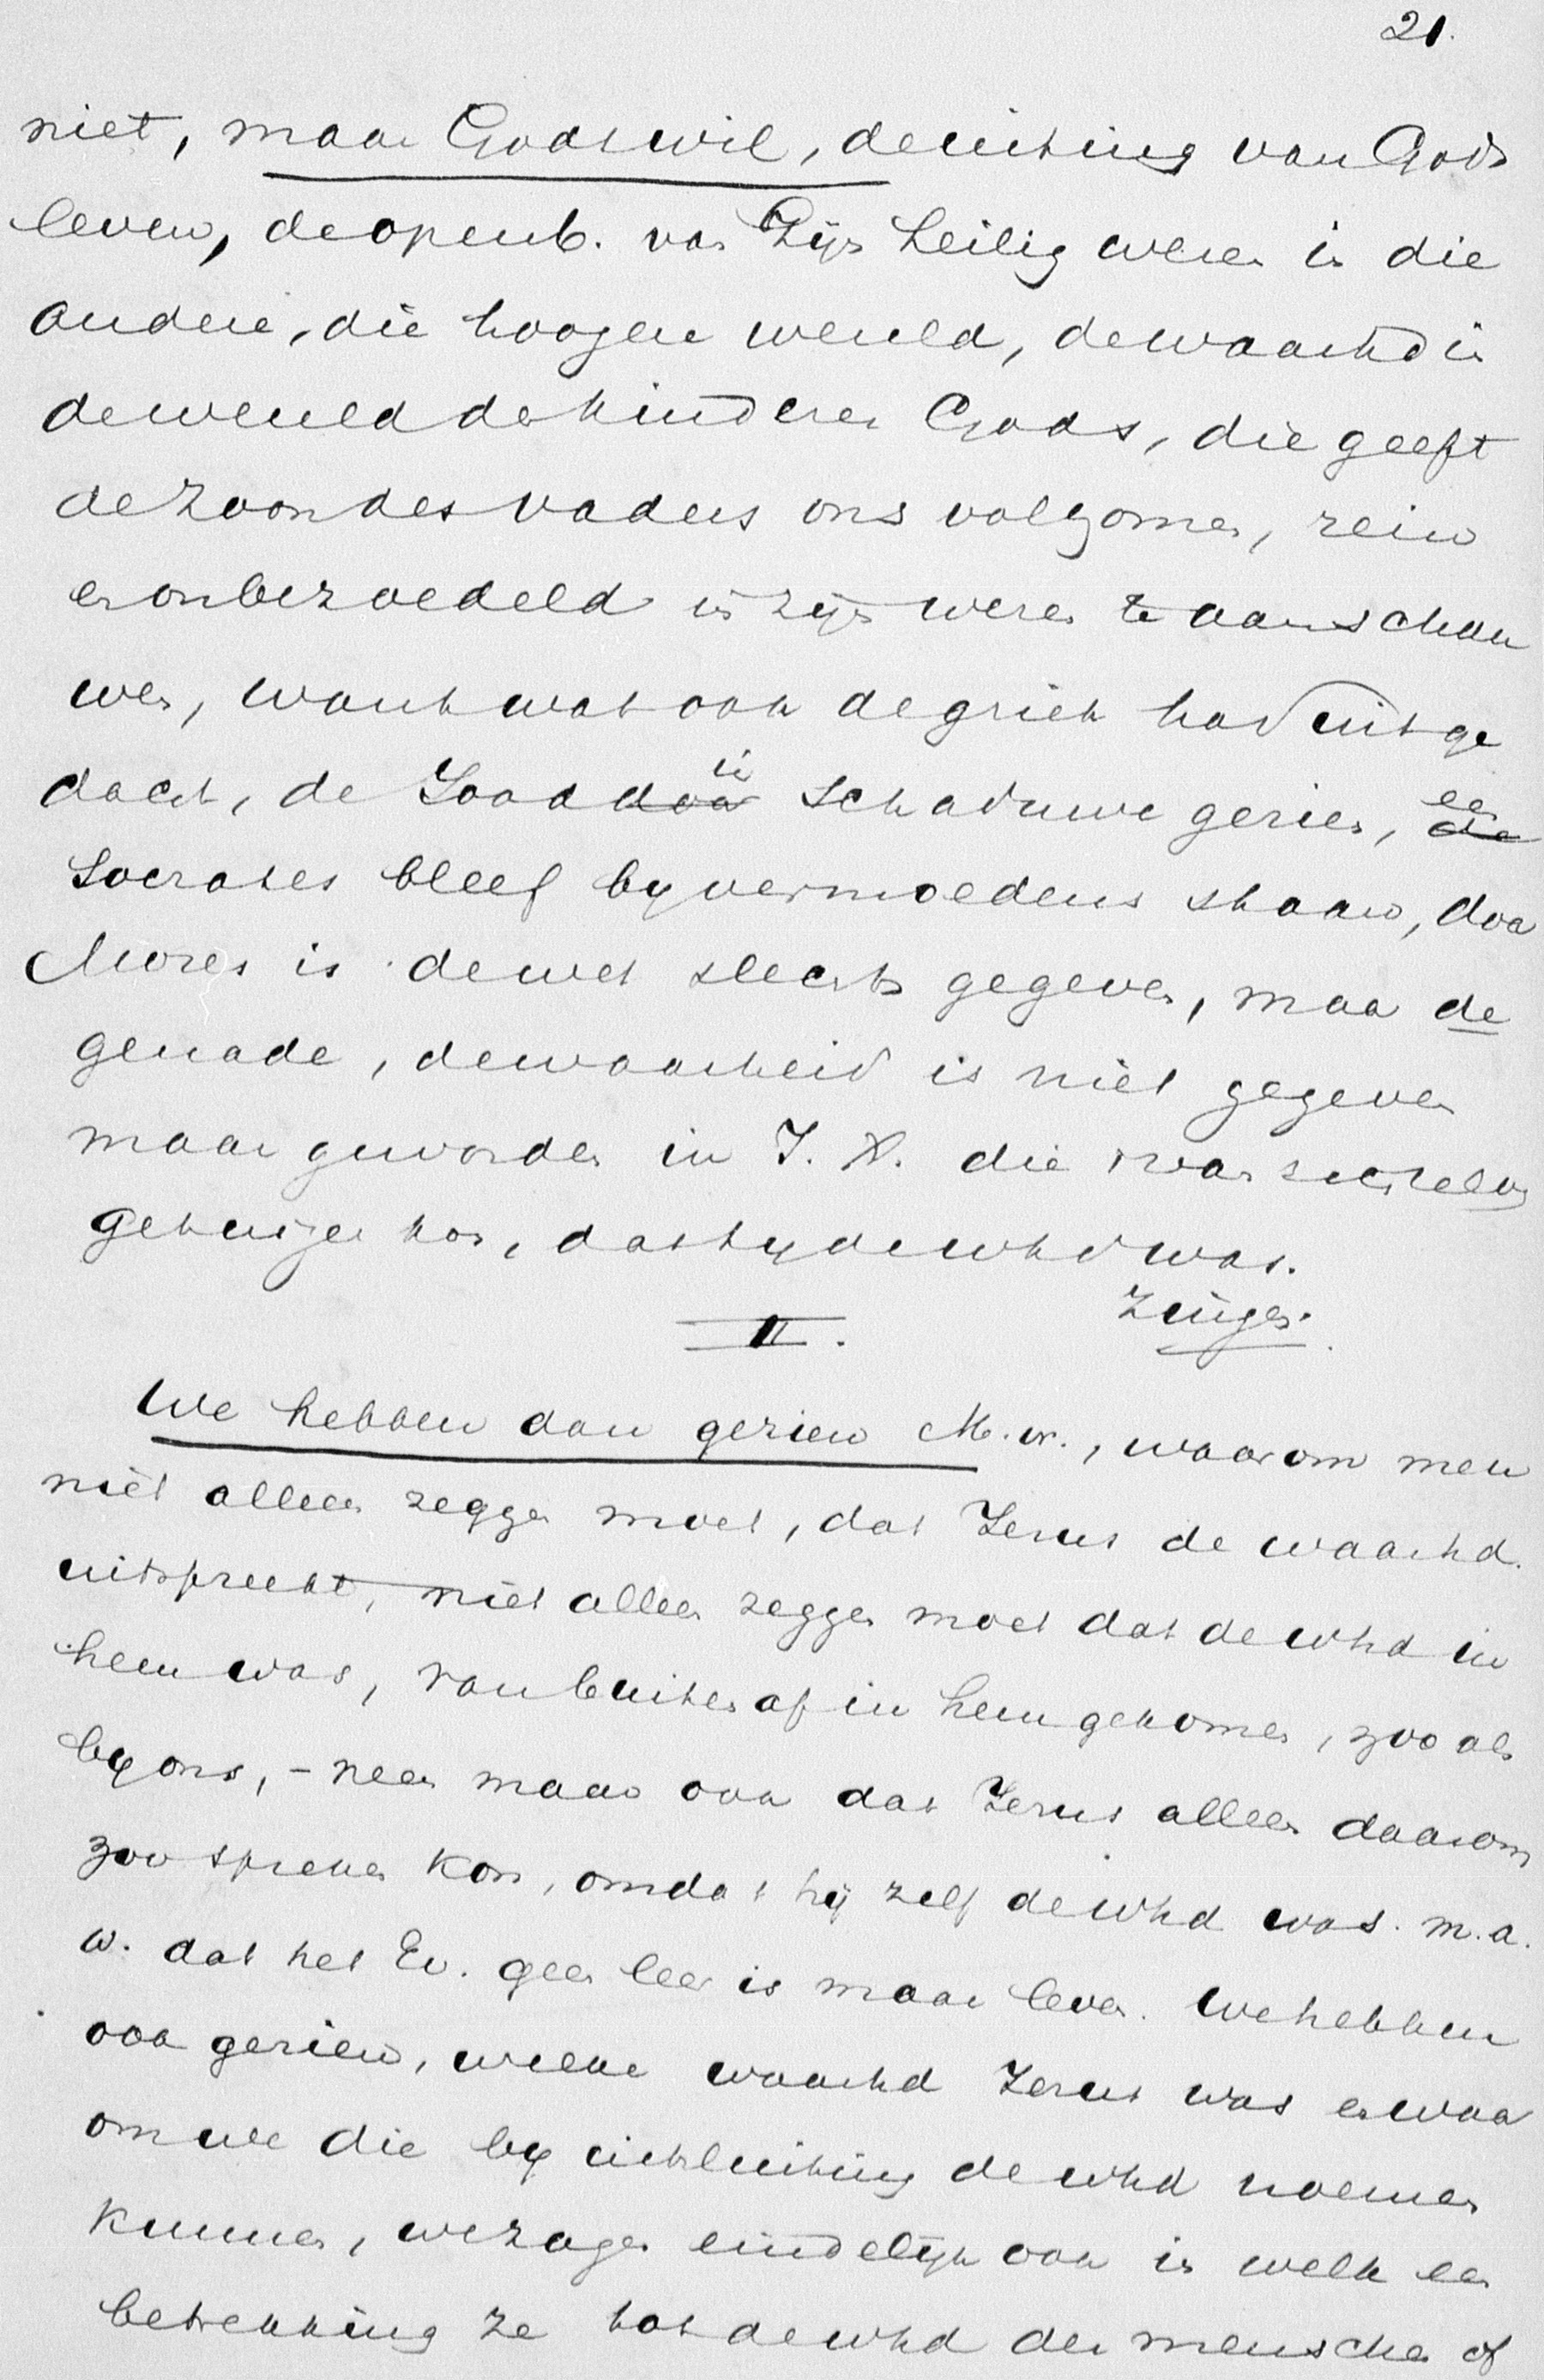 21.
niet, maar Gods wil, de uiting van Gods
leven, de openb. van Zijn heilig wezen in die
andere, die hoogere wereld, de waarhd in
de wereld der kinderen Gods, die geeft
de zoon des vaders ons volkomen, rein
en onbezoedeld in zijn wezen te aanschou
wen, want wat ook de griek had uitge
dacht, de Jood in schaduwe gezien, een
Socrates bleef by vermoedens staan, door
Mozes is de wet slechts gegeven, maar de
genade, de waarheid is niet gegeven
maar geworden in J. X. die van zich zelven
getuigen kon, dat hy de whd was.
Zingen.
II.
We hebben dan gezien M. v., waarom men
niet alleen zeggen moet, dat Jezus de waarhd.
uitspreekt, niet alleen zeggen moet dat de whd in
hem was, van buiten af in hem gekomen, zoo als
by ons, - neen maar ook dat Jezus alleen daarom
zoo spreken kon, omdat hij zelf de whd was. m.a.
w. dat het Ev. geen leer is maar leven. We hebben
ook gezien, welke waarhd Jezus was en waar
om we die by uitsluiting de whd noemen
kunnen, we zagen eindelijk ook in welk een
betrekking ze tot de whd der menschen of